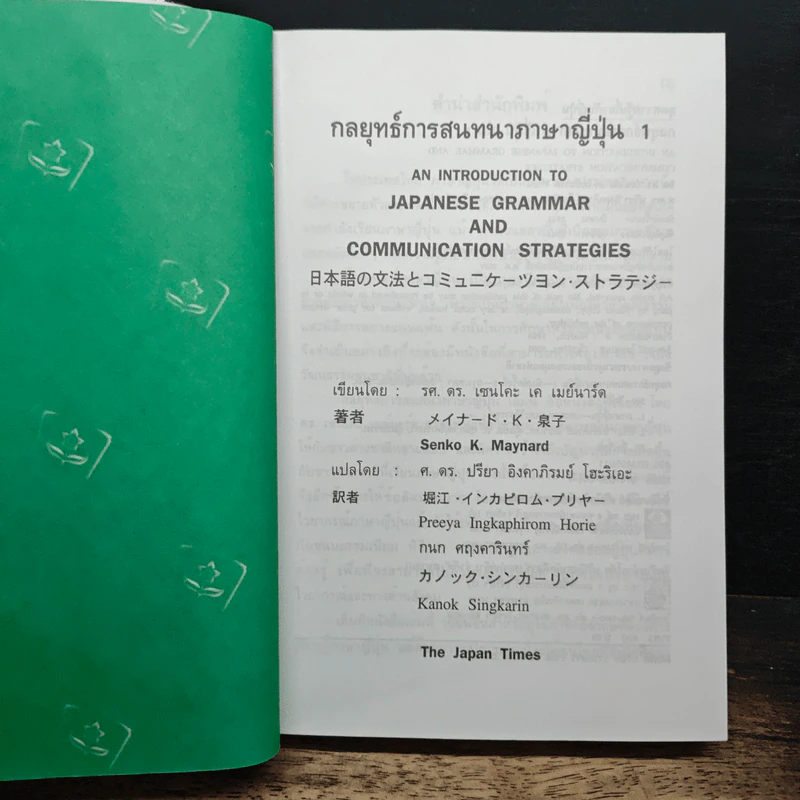 กลยุทธ์การสนทนาภาษาญี่ปุ่น 1
AN INTRODUCTION TO
JAPANESE GRAMMAR
AND
COMMUNICATION STRATEGIES
日本語の文法とコミュニケーツヨン・ストラテジー
เขียนโดย : รศ. ดร. เซนโคะ เค เมย์นาร์ด
著者 メイナード・K・泉子
Senko K. Maynard
แปลโดย : ศ. ดร. ปรียา อิงคาภิรมย์ โฮะริเอะ
訳者 堀江・インカピロム・プリヤー
Preeya Ingkaphirom Horie
กนก ศฤงคารินทร์
カノック・シンカーリン
Kanok Singkarin
The Japan Times